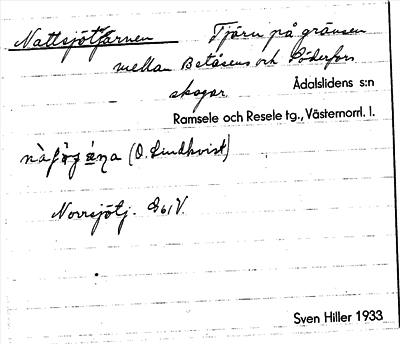 Nattsjötjärnen Tjärn på gränsen
mellan Betåsens och Söderfors
skogar.
Ådalslidens s:n
Ramsele och Resele tg., Västernorrl. l.
(O. Lindkvist)
Norrsjötj. G61V.
Sven Hiller 1933